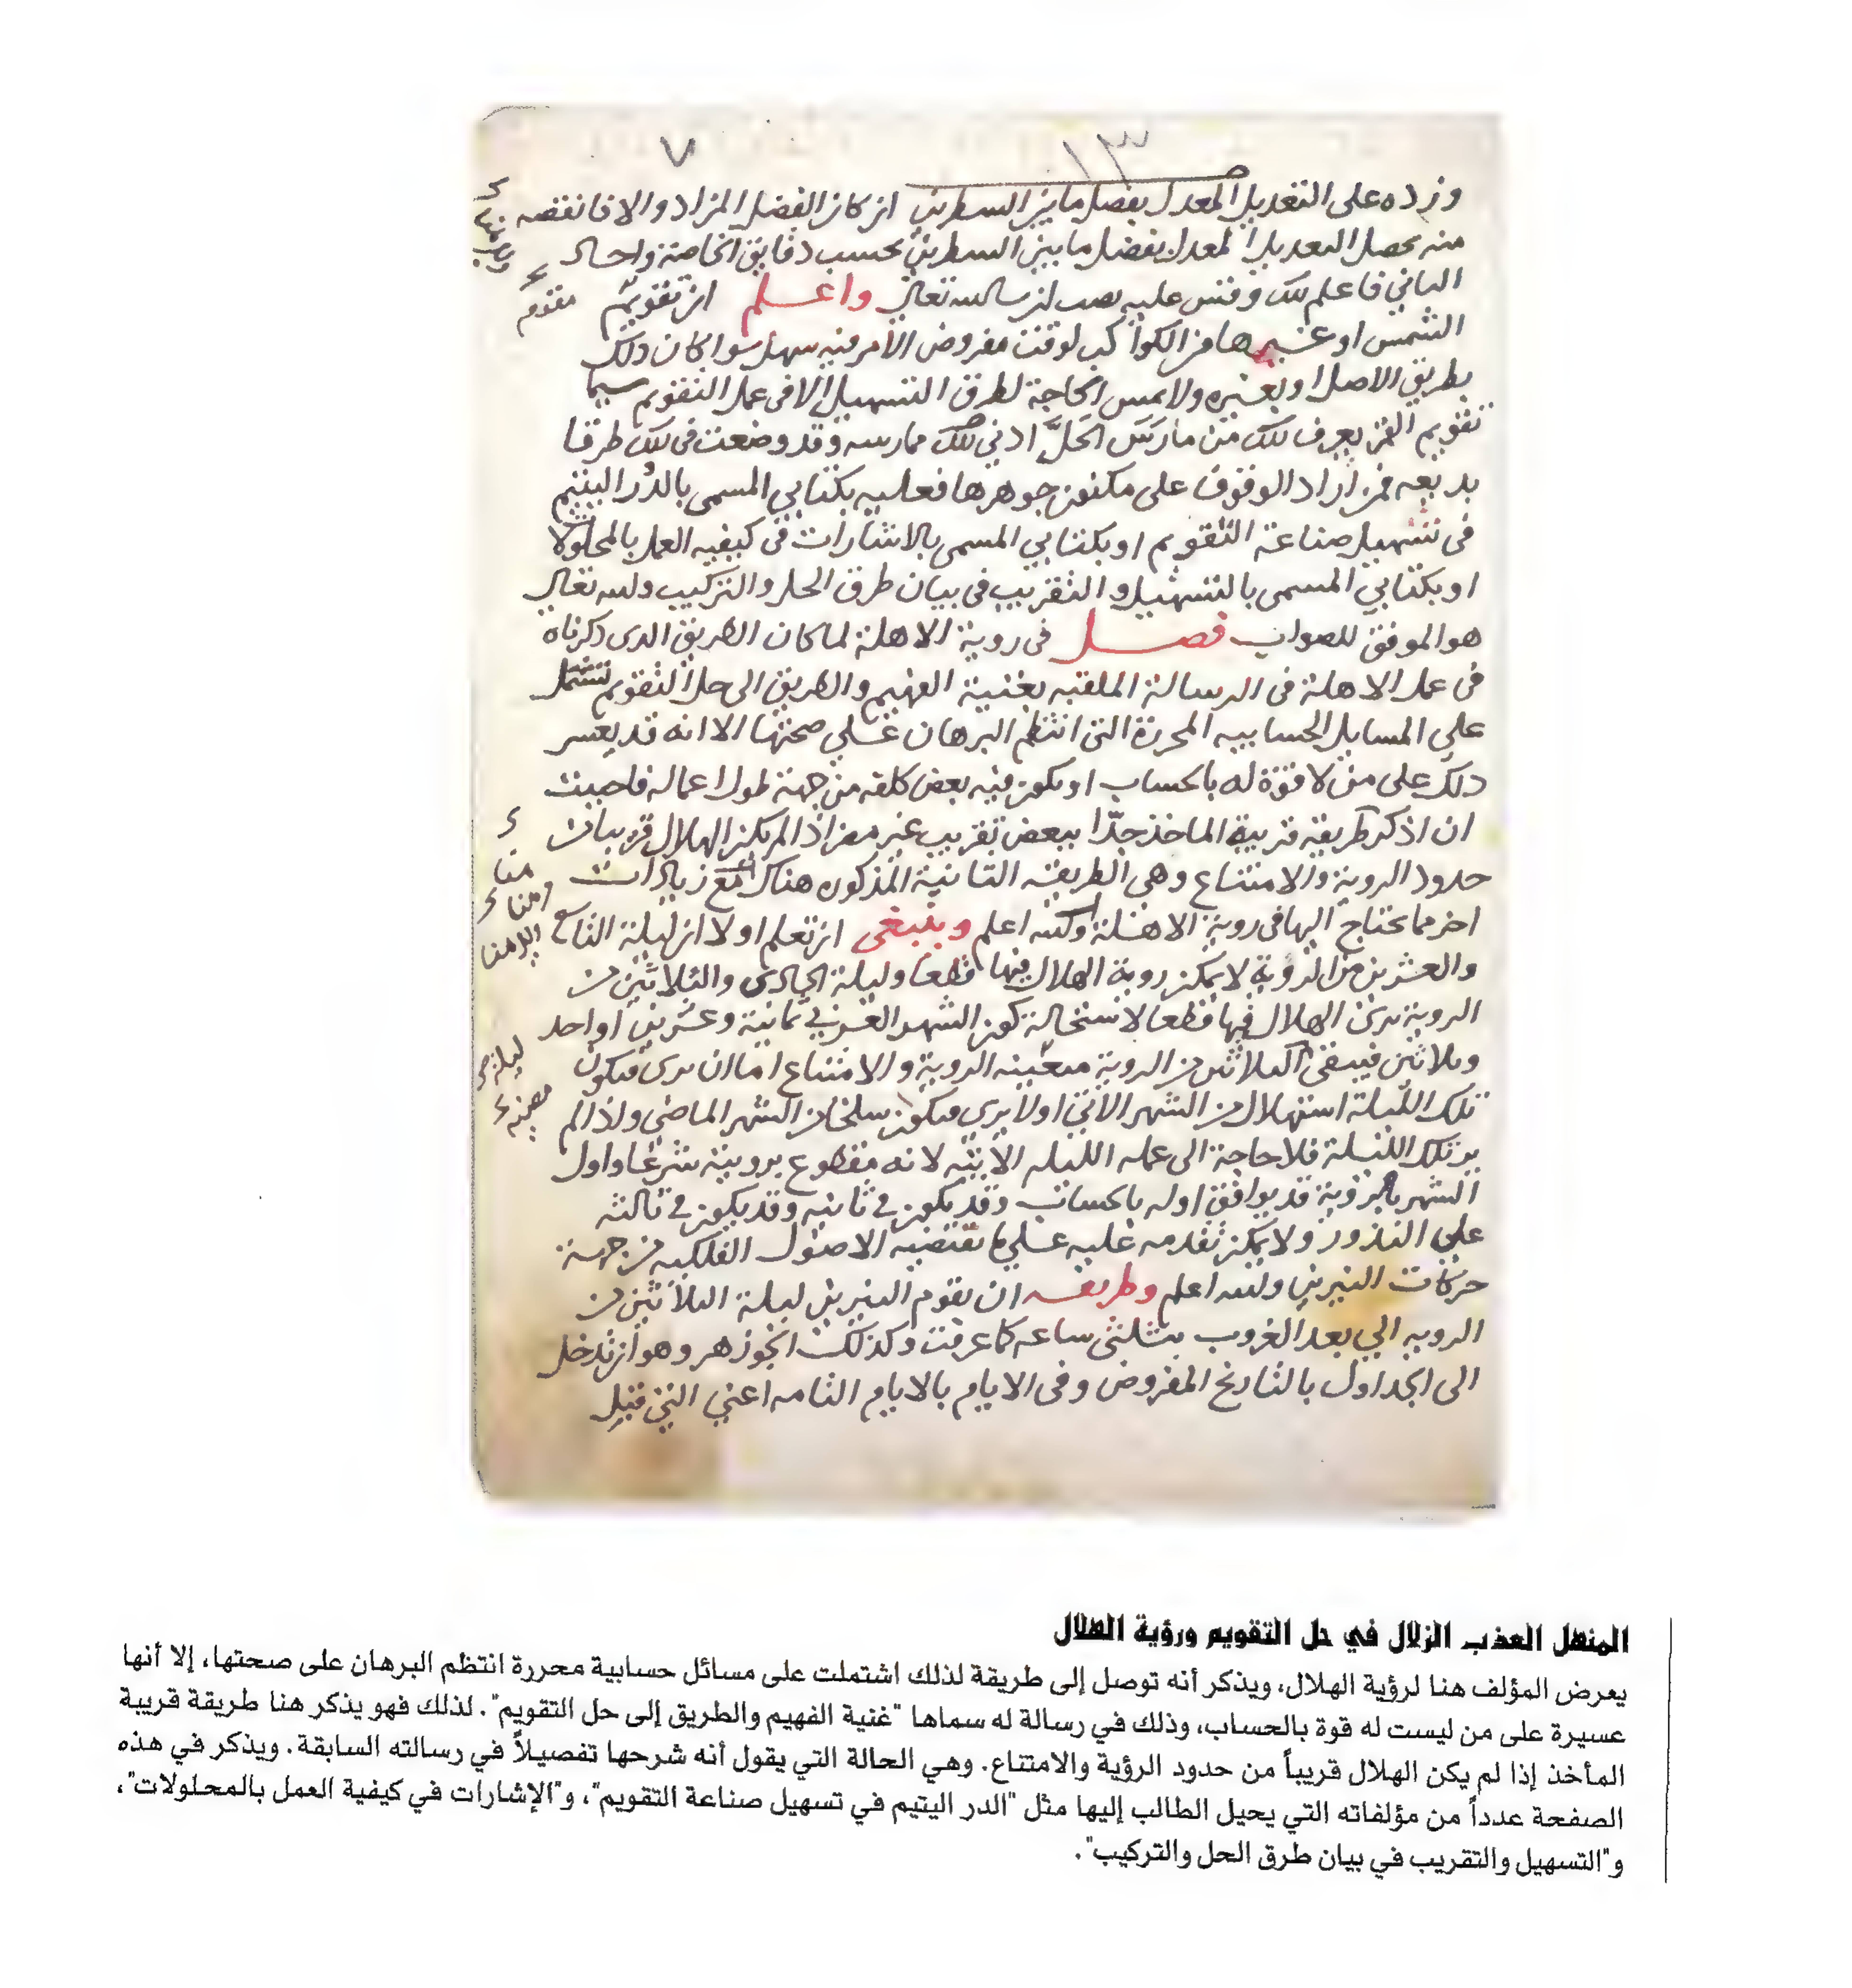 ١٣
٧
وزده على التعديل المعدل بفضل ما بين السطرين ان كان الفضل المزاد والا فانقصه
منه يحصل التعديل المعدل بفضل ما بين السطرين بحسب دقايق الخاصة واحـ
الباقي فاعلم ذلك وقس عليه تصب ان شا الله تعالى واعلم ان تقويم
الشمس او غيرها من الكواكب لوقت مفروض الامر فيه سهل سوا كان ذلك
بطريق الاصل او بغيره ولا تمس الحاجة لطرق التسهيل الا في عمل التقويم سيما
تقويم القمر يعرف ذلك من مارس الحل ادني ممارسه وقد وضعت في ذلك طرقا
بديعه فمن اراد الوقوف على مكنون جوهرها فعليه بكتابي المسمى بالدر اليتيم
في تسهيل صناعة التقويم او بكتابي المسمى بالاشارات في كيفيه العمل بالمحلولا
او بكتابي المسمى بالتسهيل والتقريب في بيان طرق الحل والتركيب والله تعالى
هو الموفق للصواب فصل في روية الاهلة لما كان الطريق الذى ذكرناه
في عمل الاهلة في الرسالة الملقبه بغنية الفهيم والطريق الى حل التقويم تشتمل
على المسايل الحسابيه المحررة التى انتظم البرهان علي صحتها الا انه قد يعسر
ذلك على من لا قوة له بالحساب او يكون فيه بعض كلفه من جهة طول اعماله فاحببت
ان اذكر طريقة قريبة الماخذ جدا ببعض تقريب غير مضر اذا لم يكن الهلال قريبا من
حدود الروية والامتناع وهي الطريقه الثانية المذكوره هناك مع زيادات
اخر مما يحتاج اليها في روية الاهلة والله اعلم وينبغي ان تعلم اولا ان ليلة التاسع
والعشرين من الروية لا يمكن روية الهلال فيها قطعا وليلة الحادى والثلاثين من
الروية يرى الهلال فيها قطعا لاستحالة كون الشهر العربي ثمانية وعشرين او احد
وثلاثين فيبقى الثلاثين من الروية متعينه الروية والامتناع اما ان يرى فيكون
تلك الليلة استهلال من الشهر الاتي اولا يرى فيكون سلخا من الشهر الماضي واذا لم
ير تلك الليلة فلا حاجة الى عمله الليله الاتيه لانه مقطوع برويته شرعا واول
الشهر بالروية قد يوافق اوله بالحساب وقد يكون في ثانيه وقد يكون في ثالثه
علي الندور ولا يمكن تقدمه عليه علي ما تقتضيه الاصول الفلكيه من جهة
حركات النيرين والله اعلم وطريقه ان تقوم النيرين ليلة الثلاثين من
الرويه الي بعد الغروب بثلثى ساعه كما عرفت وكذلك الجوزهر وهو ان تدخل
الى الجداول بالتاريخ المفروض وفي الايام بالايام التامه اعني التي قبل
المنهل العذب الزلال في حل التقويم ورؤية الهلال
يعرض المؤلف هنا لرؤية الهلال، ويذكر أنه توصل إلى طريقة لذلك اشتملت على مسائل حسابية محررة انتظم البرهان على صحتها، إلا أنها
عسيرة على من ليست له قوة بالحساب، وذلك في رسالة له سماها "غنية الفهيم والطريق إلى حل التقويم". لذلك فهو يذكر هنا طريقة قريبة
المأخذ إذا لم يكن الهلال قريباً من حدود الرؤية والامتناع. وهي الحالة التي يقول أنه شرحها تفصيلاً في رسالته السابقة. ويذكر في هذه
الصفحة عدداً من مؤلفاته التي يحيل الطالب إليها مثل "الدر اليتيم في تسهيل صناعة التقويم"، و"الإشارات في كيفية العمل بالمحلولات"،
و"التسهيل والتقريب في بيان طرق الحل والتركيب".